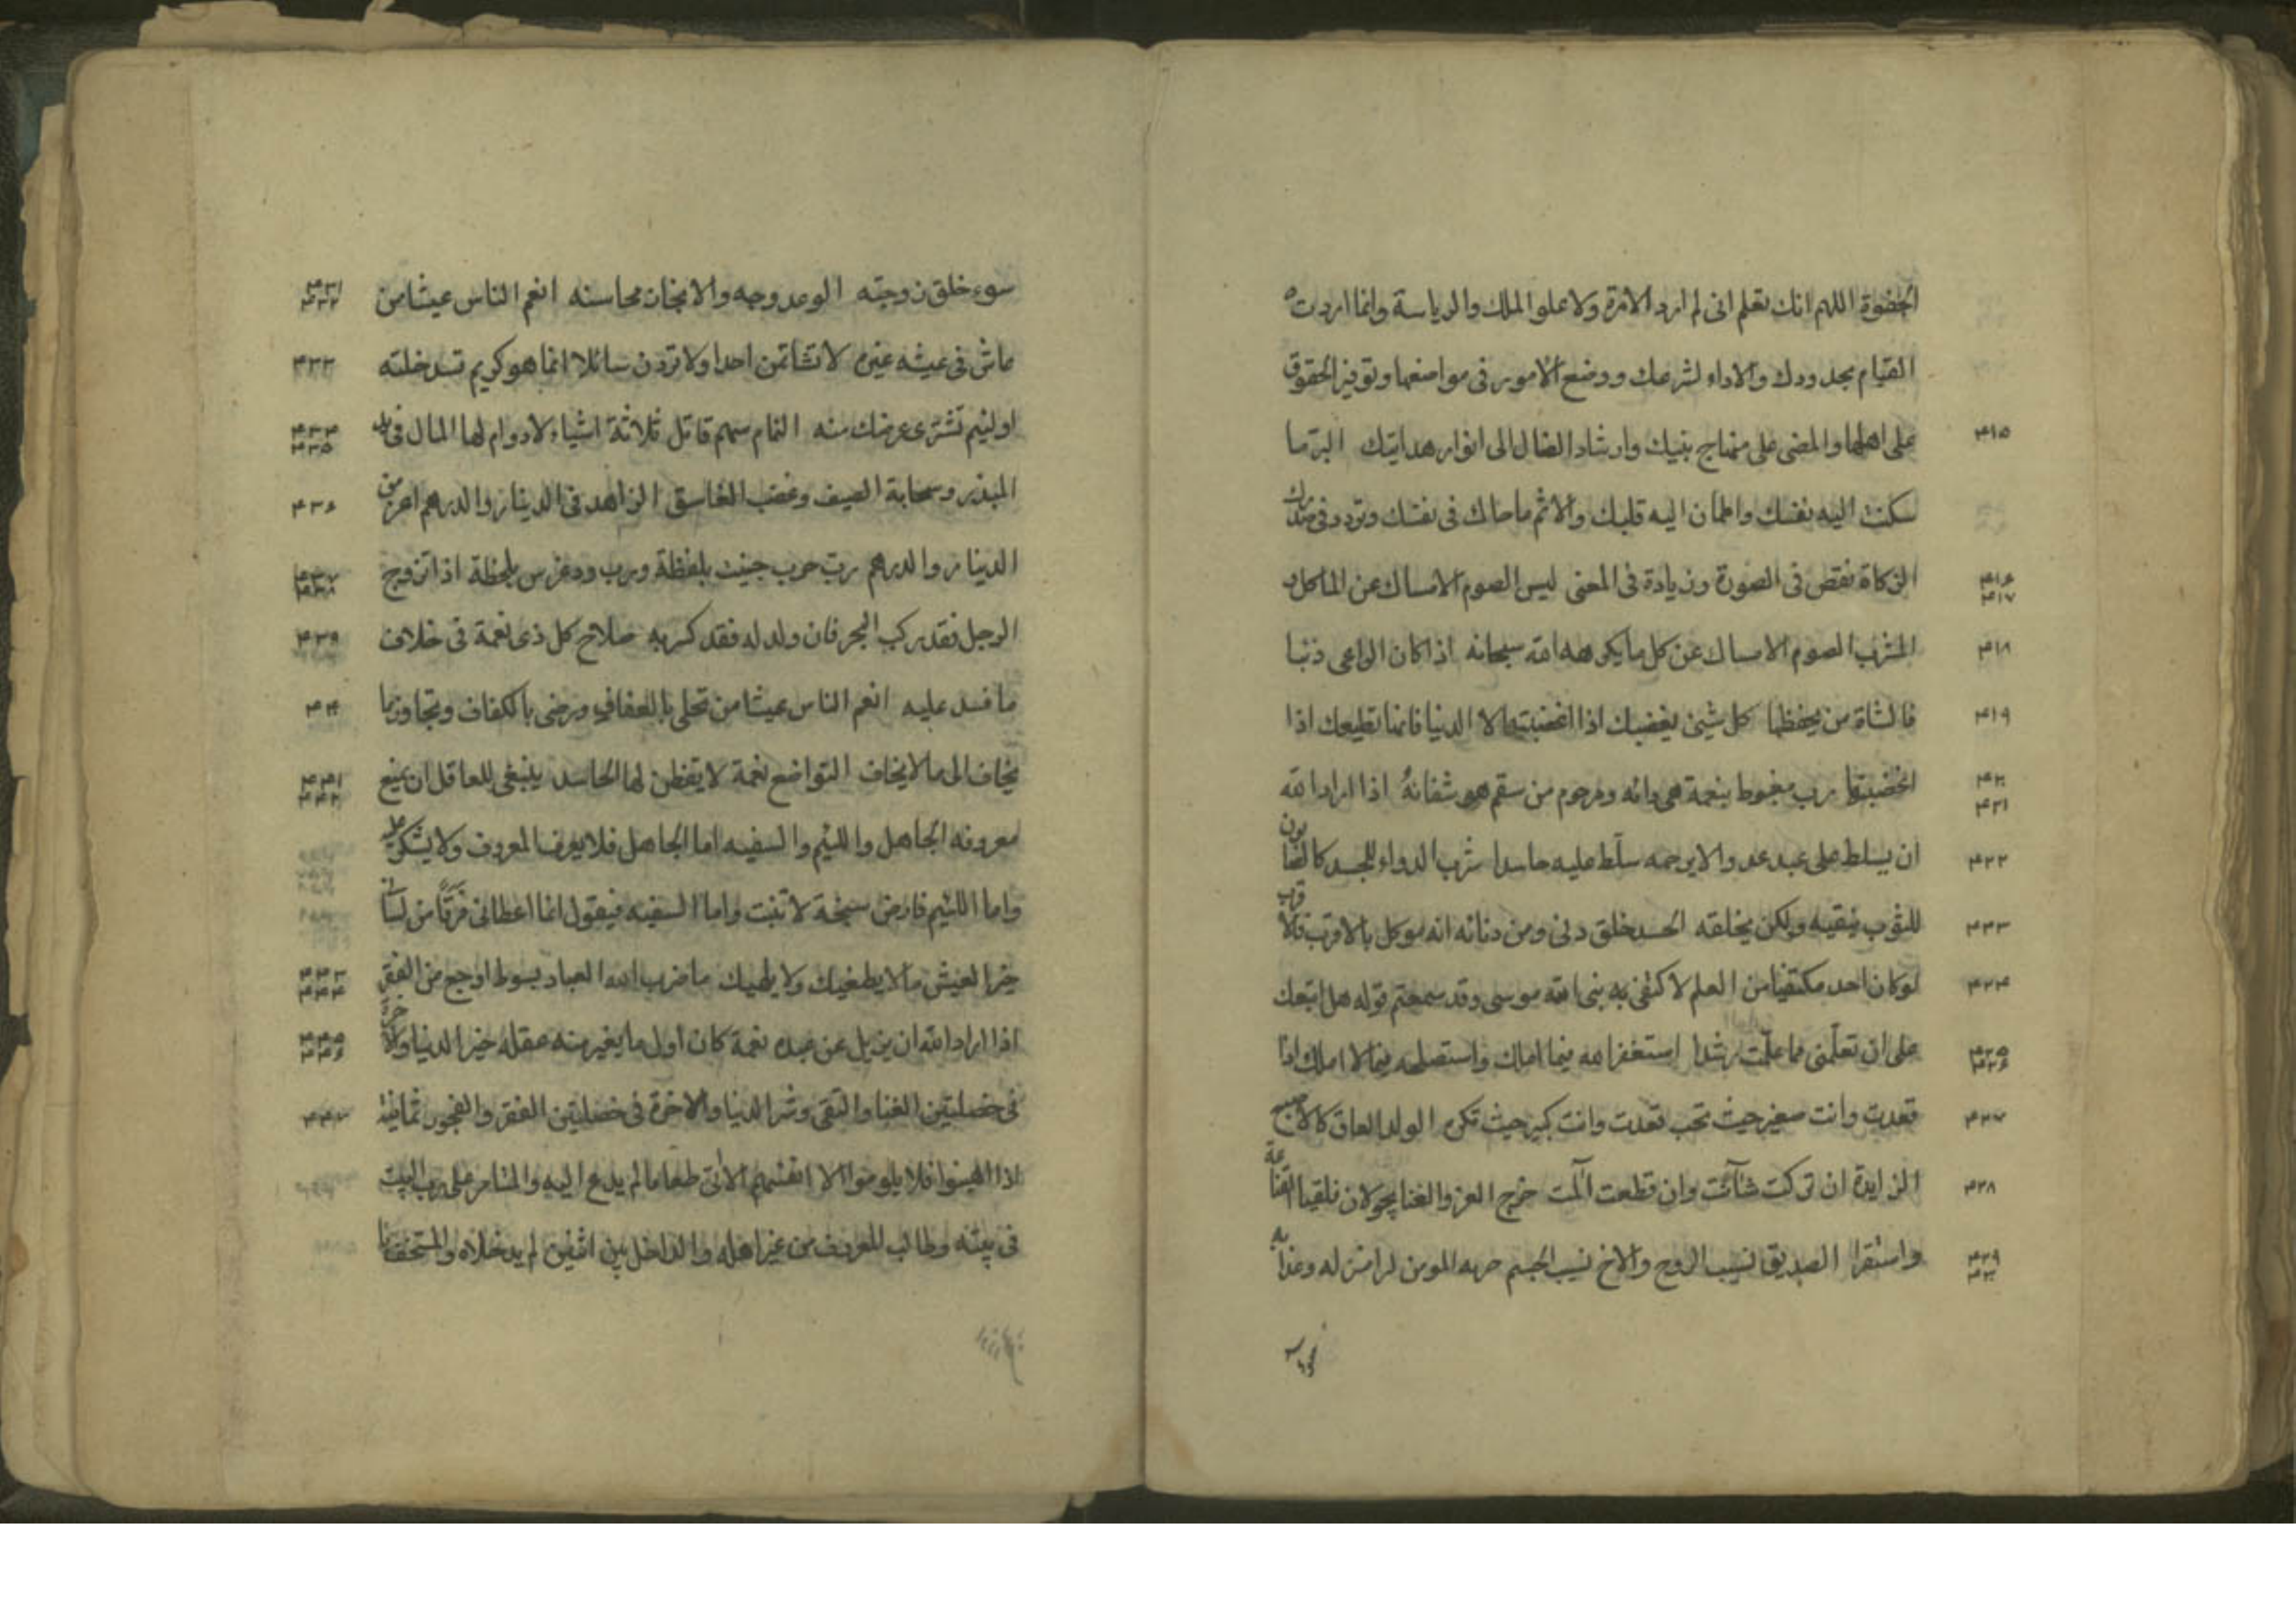 الخضوة اللهم انك تعلم انى لم ارد الامرة ولا علو الملك والرياسة وانما اردت
القيام بحدودك والاداء لشرعك ووضع الامور فى مواضعها وتوفير الحقوق
٤١٥ على اهلها والمضى على منهاج نبيك وارشاد الضال الى انوار هدايتك البر ما
سكنت اليه نفسك واطمان اليه قلبك والاثم ما حاك فى نفسك وتردد فى صدرك
٤١٦ ٤١٧ الزكاة نقص فى الصورة وزيادة فى المعنى ليس الصوم الامساك عن الماكل و
٤١٨ المشرب الصوم الامساك عن كل ما يكرهه الله سبحانه اذا كان الراعى ذئبا
٤١٩ فالشاة من يحفظها كل شيئ يغضبك اذا اغضبته الا الدنيا فانها تطيعك اذا
٤٢٠ ٤٢١ اغضبتها رب مغبوط بنعمة هى دائه ومرحوم من سقم هو شفائه اذا اراد الله
٤٢٢ ان يسلط على عبد عدوا لا يرحمه سلّط عليه حاسدا شرب الدواء للجسد كالصابون
٤٢٣ للثوب ينقيه ولكن يخلقه الحسد خلق دنى ومن دنائه انه موكل بالاقرب فالاقرب
٤٢٤ لو كان احد مكتفيا من العلم لاكتفى به نبى الله موسى وقد سمعتم قوله هل اتبعك
٤٢٥ ٤٢٦ على ان تعلّمنى مما علّمت رشدا استغفر الله فيما املك واستصلحه فيما لا املك اذا
٤٢٧ قعدت وانت صغير حيث تحب قعدت وانت كبير حيث تكره الولد العاق كالاصبع
٤٢٨ الزايدة ان تركت شآنت وان قطعت آلمت خرج العز والغنا يجولان فلقيا القناعة
٤٢٩ ٤٣٠ واستقرا الصديق نسيب الروح والاخ نسيب الجسم جهه المومن لرامنزله وعذابه
سوء خلق زوجته الوعد وجه والانجاز محاسنه انعم الناس عيشا من ٤٣١ ٤٣٢
عاش فى عيشه غيره لا تشاتمن احدا ولا تردن سائلا انما هو كريم تسد خلته ٤٣٣
او لئيم تشترى عرضك منه النمام سهم قاتل ثلاثة اشياء لا دوام لها المال فى يد ٤٣٤ ٤٣٥
المبذر وسحابة الصيف وغضب العاسق الزاهد فى الدينار والدرهم اعز من ٤٣٦
الدينار والدرهم رب حرب جنيت بلفظة ورب ود غرس بلحظة اذا تزوج ٤٣٧ ٤٣٨
الرجل فقد ركب البحر فان ولد له فقد كسر به صلاح كل ذى نعمة فى خلاف ٤٣٩
ما فسد عليه انعم الناس عيشا من تحلى بالعفاف ورضى بالكفاف وتجاوز ما ٤٤٠
يخاف الى ما لا يخاف التواضع نعمة لا يفطن لها الحاسد ينبغى للعاقل ان يمنع ٤٤١ ٤٤٢
معروفه الجاهل واللئيم والسفيه اما الجاهل فلا يعرف المعروف ولا يشكر عليه
واما اللئيم فارض سبخة لا تنبت واما السفيه فيقول انما اعطانى فرقا من لسانى
خير العيش ما لا يطغيك ولا يلهيك ما ضرب الله العباد بسوط اوجع من الفقر ٤٤٣ ٤٤٤
اذا اراد الله ان يزيل عن عبده نعمة كان اول ما يغير منه عقله خير الدنيا والاخرة ٤٤٥ ٤٤٦
فى خصلتين الغنا والتقى وشر الدنيا والاخرة فى خصلتين الفقر والفجور ثمانية ٤٤٧
اذا اهينوا فلا يلوموا الا انفسهم الاتى طعاما لم يدع اليه والمتامر على رب البيت
فى بيته وطالب المعروف من غير اهله والداخل بين اثنين لم يدخلاه والمستخف